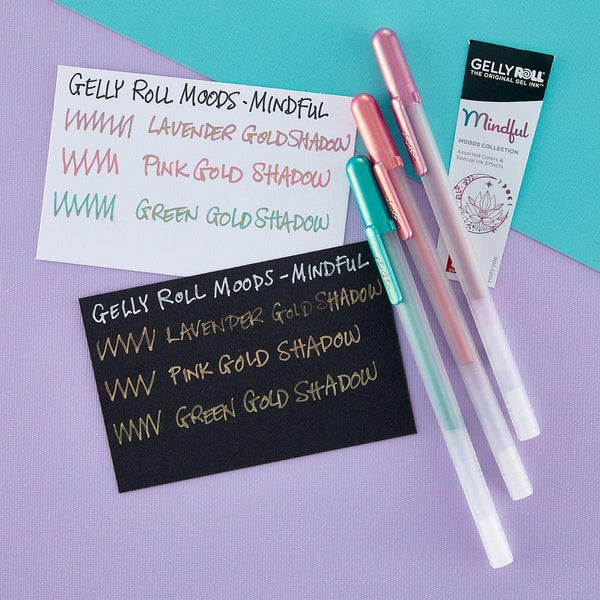 GELLY ROLL MOODS - MINDFUL
LAVENDER GOLD SHADOW
PINK GOLD SHADOW
GREEN GOLD SHADOW
GELLY ROLL MOODS - MINDFUL
LAVENDER GOLD SHADOW
PINK GOLD SHADOW
GREEN GOLD SHADOW
GELLY ROLL
THE ORIGINAL GEL INK™
Mindful
MOODS COLLECTION
Assorted Colors &
Special Ink Effects